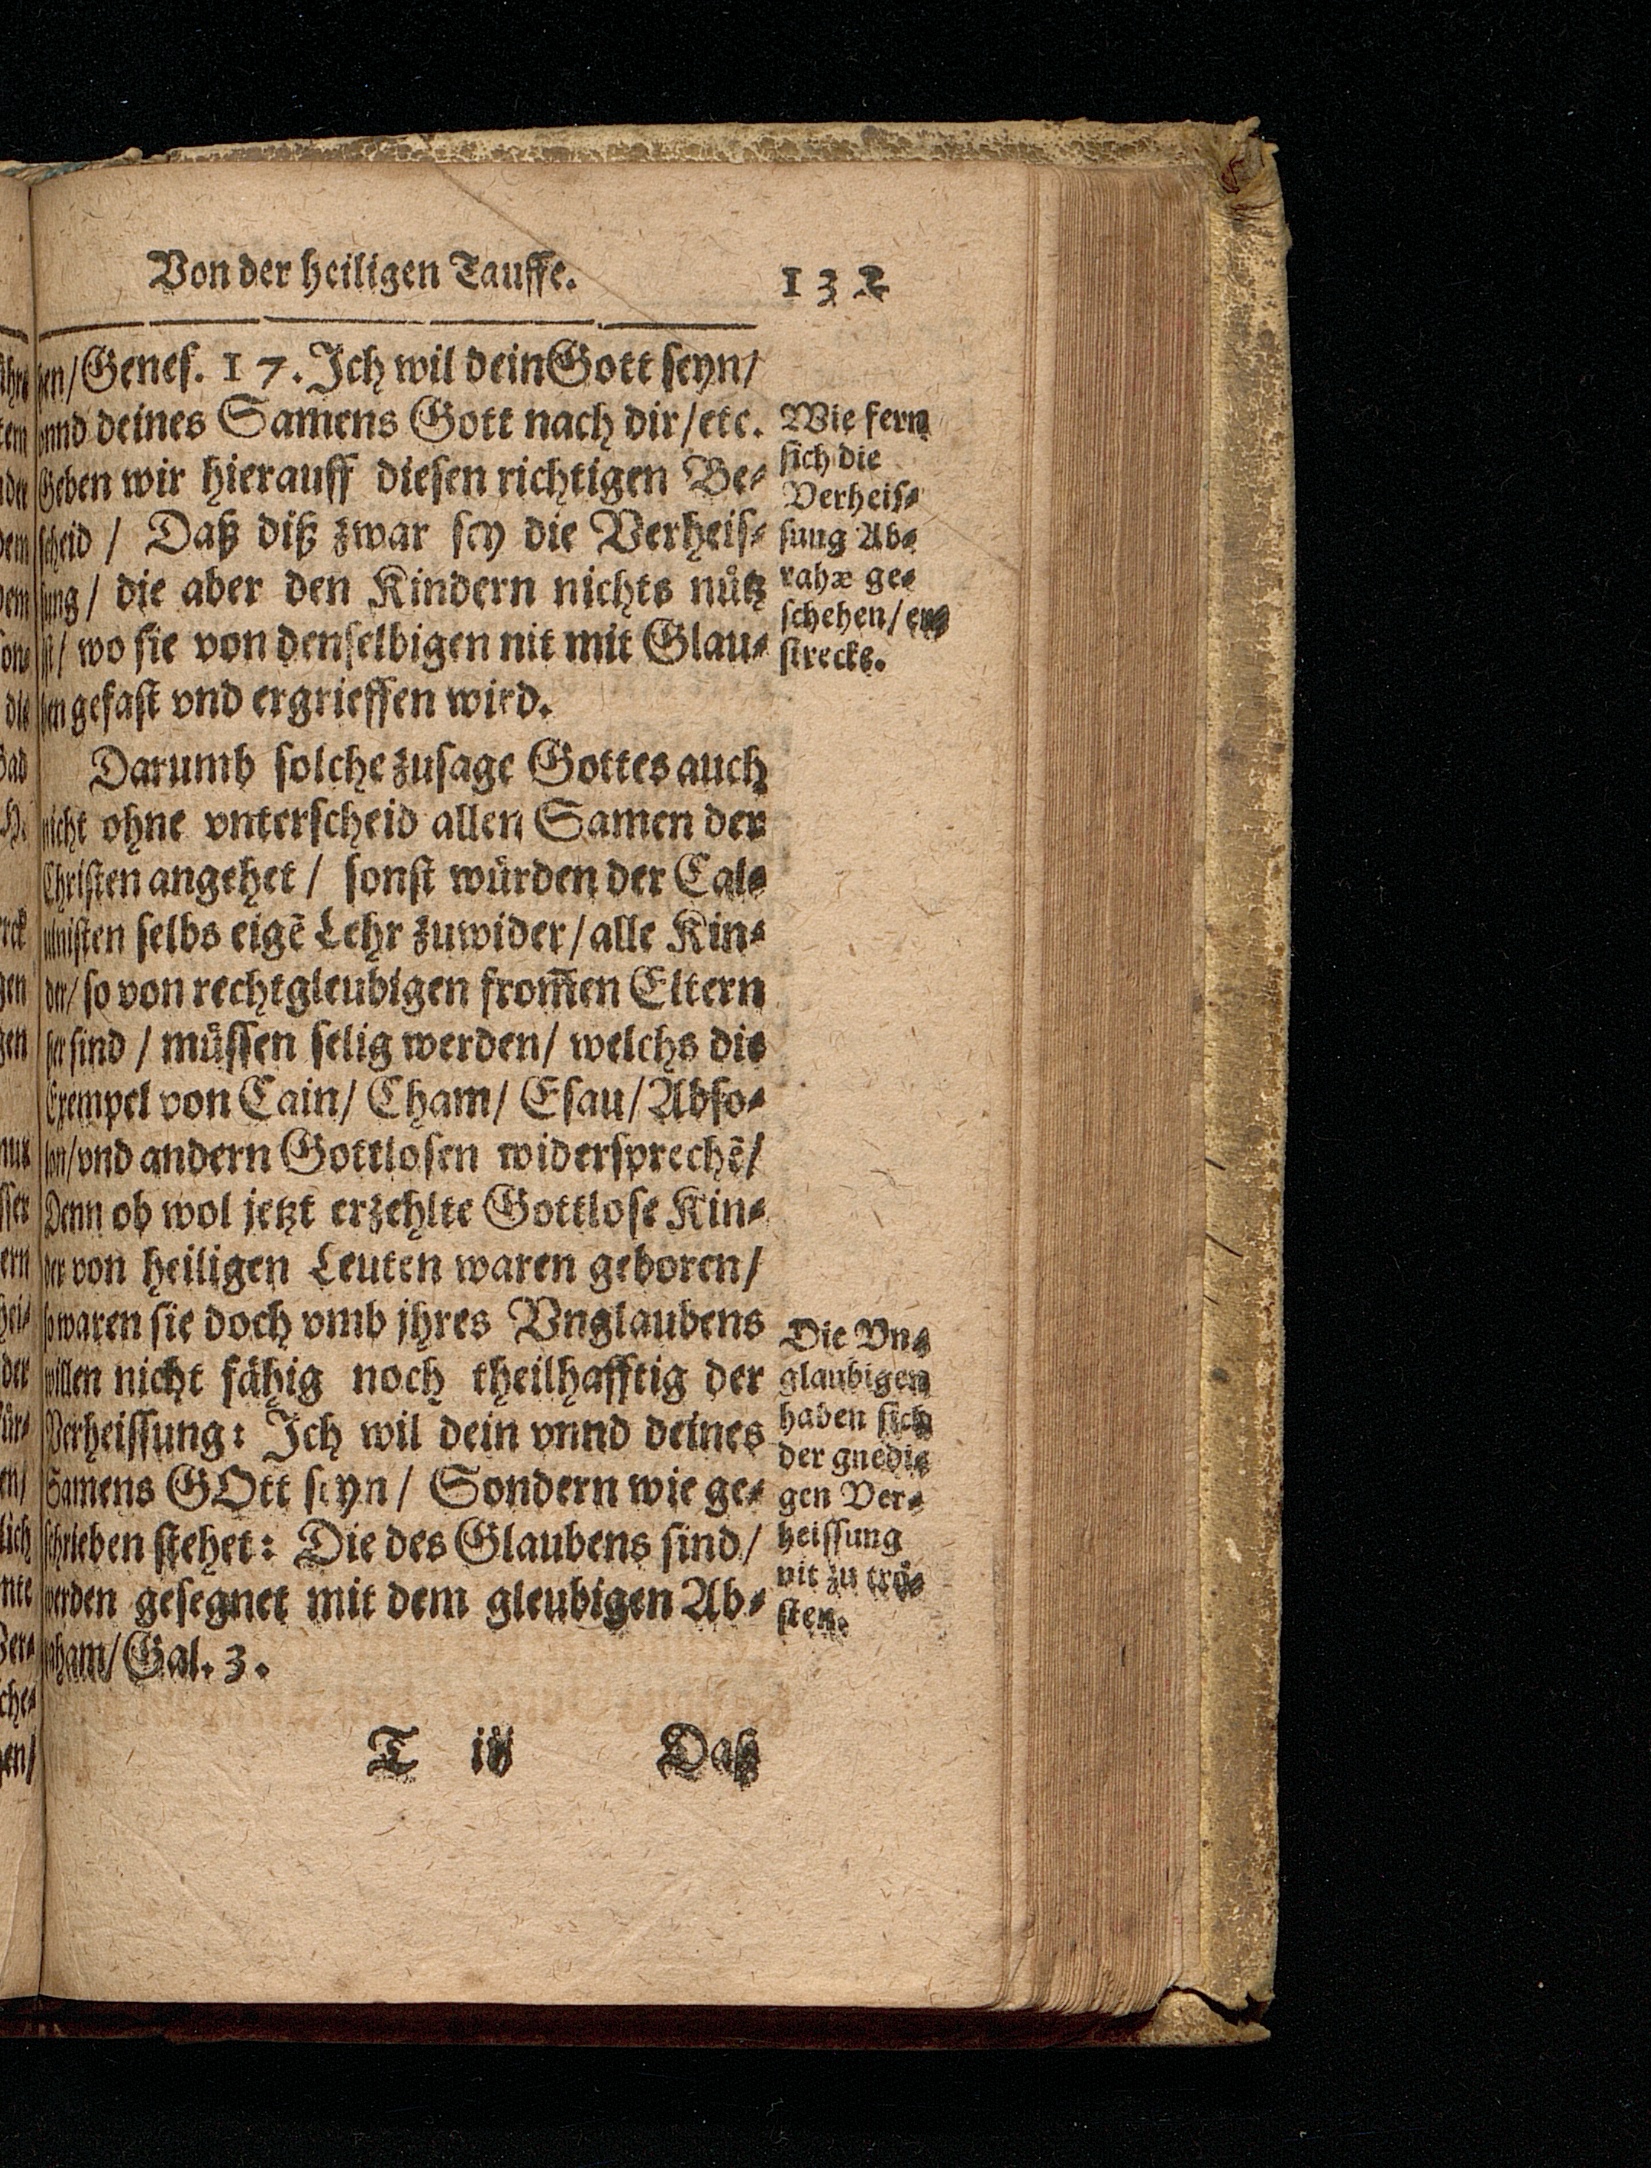 Von der heiligen Tauffe.
132
hen/ Genes. 17. Ich wil dein Gott seyn/
vnnd deines Samens Gott nach dir/etc.
Geben wir hierauff diesen richtigen Be-
scheid / Daß diß zwar sey die Verheis-
sung / die aber den Kindern nichts nůtz
ist/ wo sie von denselbigen nit mit Glau-
ben gefast vnd ergrieffen wird.
Darumb solche zusage Gottes auch
nicht ohne vnterscheid allen Samen der
Christen angehet / sonst wůrden der Cal-
uinisten selbs eigē Lehr zuwider/ alle Kin-
der/ so von rechtgleubigen from̄en Eltern
her sind / můssen selig werden/ welchs die
Exempel von Cain/ Cham/ Esau/ Abso-
lon/ vnd andern Gottlosen widersprechē/
Denn ob wol jetzt erzehlte Gottlose Kin-
der von heiligen Leuten waren geboren/
so waren sie doch vmb jhres Vnglaubens
willen nicht fähig noch theilhafftig der
Verheissung: Ich wil dein vnnd deines
Samens GOtt seyn / Sondern wie ge-
schrieben stehet: Die des Glaubens sind/
werden gesegnet mit dem gleubigen Ab-
raham/ Gal. 3.
T iij Daß
Wie fern
sich die
Verheis-
sung Ab-
rahæ ge-
schehen/ er-
strecke.
Die Vn-
glaubigen
haben sich
der gnedi-
gen Ver-
heissung
nit zu trö-
sten.